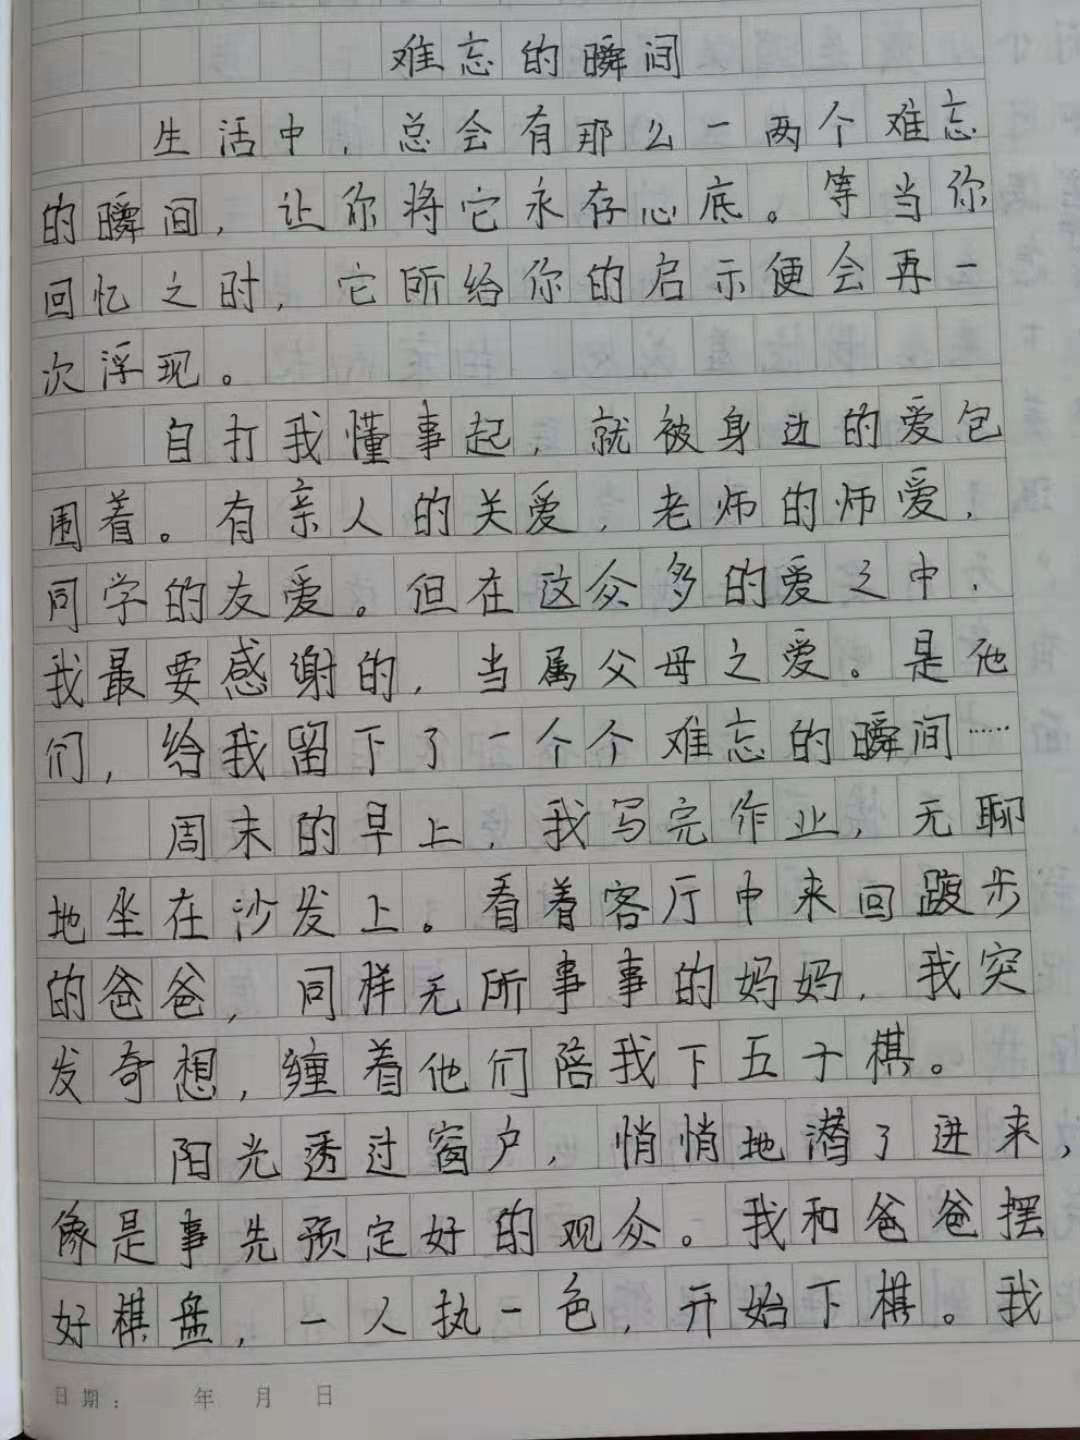 难忘的瞬间
生活中，总会有那么一两个难忘
的瞬间，让你将它永存心底。等当你
回忆之时，它所给你的启示便会再一
次浮现。
自打我懂事起，就被身边的爱包
围着。有亲人的关爱，老师的师爱，
同学的友爱。但在这众多的爱之中，
我最要感谢的，当属父母之爱。是他
们，给我留下了一个个难忘的瞬间……
周末的早上，我写完作业，无聊
地坐在沙发上。看着客厅中来回踱步
的爸爸，同样无所事事的妈妈，我突
发奇想，缠着他们陪我下五子棋。
阳光透过窗户，悄悄地潜了进来，
像是事先预定好的观众。我和爸爸摆
好棋盘，一人执一色，开始下棋。我
日期： 年 月 日